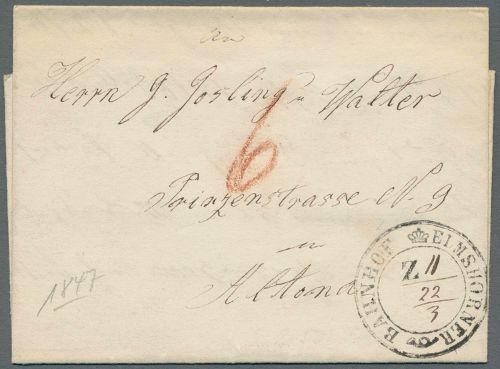 An
Herrn J. Josling u Walter
6
Prinzenstrasse N. 9
in
Altona
1847
ELMSHORNER BAHNHOF
Z 11
22
3